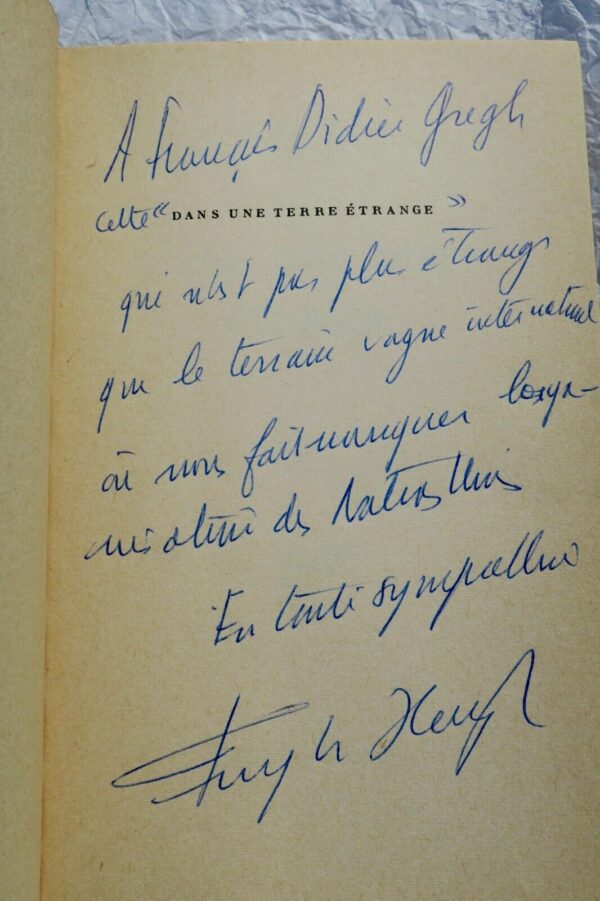 A François Didier Gregh
cette « DANS UNE TERRE ÉTRANGE »
qui n'est pas plus étrange
que le terrain vague international
où nous fait naviguer l'orga-
nisation des Nations Unies
En toute sympathie